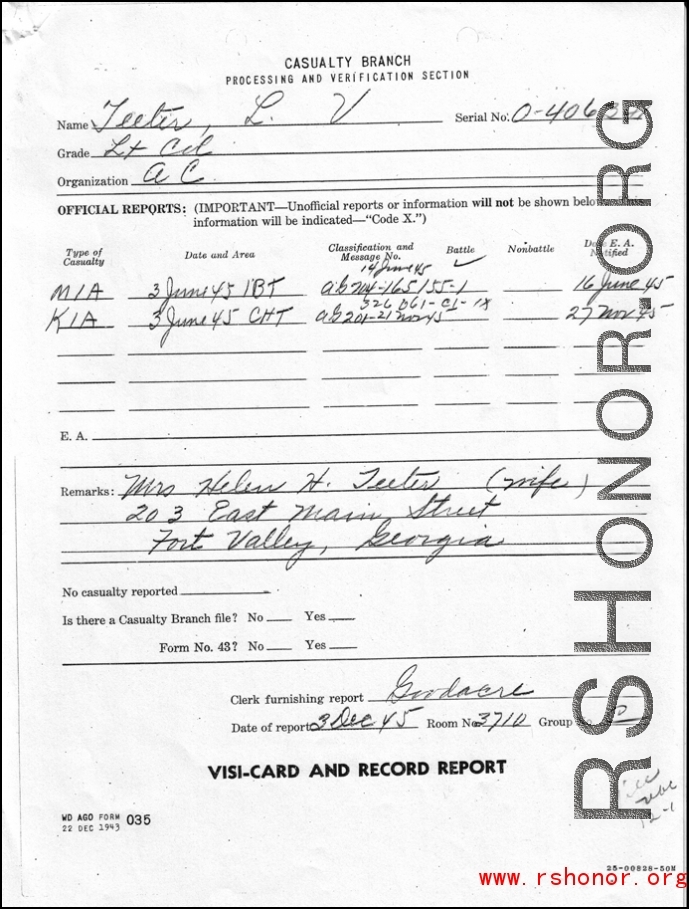 CASUALTY BRANCH
PROCESSING AND VERIFICATION SECTION
Name Teeter, L. V Serial No. O-406
Grade Lt Col
Organization A C
OFFICIAL REPORTS: (IMPORTANT—Unofficial reports or information will not be shown below
information will be indicated—"Code X.")
Type of Casualty Date and Area Classification and Message No. Battle Nonbattle Date E. A. Notified
14 June 45 ✓
MIA 3 June 45 IBT AG 704-165155-1 16 June 45
326 061-C1-1X
KIA 3 June 45 CHT AG 201-21 Nov 45 27 Nov 45
E. A.
Remarks: Mrs Helen H. Teeter (wife)
203 East Main Street
Fort Valley, Georgia
No casualty reported
Is there a Casualty Branch file? No Yes
Form No. 43? No Yes
Clerk furnishing report Goodacre
Date of report 3 Dec 45 Room No 3710 Group No
VISI-CARD AND RECORD REPORT
WD AGO FORM 035
22 DEC 1943
12-1
25-00828-50M
www.rshonor.org
RSHONOR.ORG